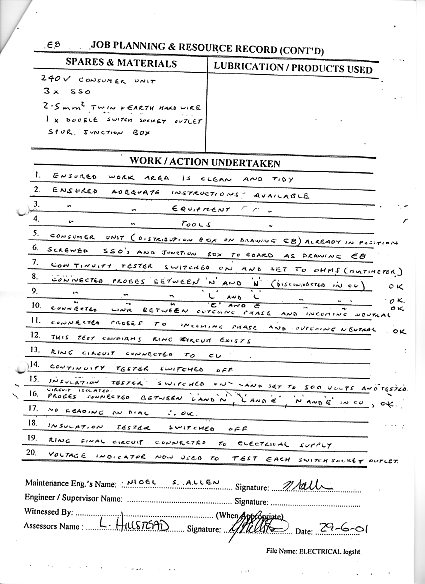 EB JOB PLANNING & RESOURCE RECORD (CONT'D)
SPARES & MATERIALS
LUBRICATION / PRODUCTS USED
240V CONSUMER UNIT
3 x SSO
2.5mm² TWIN & EARTH HARD WIRE
1 x DOUBLE SWITCH SOCKET OUTLET
SPUR. JUNCTION BOX
WORK / ACTION UNDERTAKEN
1. ENSURED WORK AREA IS CLEAN AND TIDY
2. ENSURED ADEQUATE INSTRUCTIONS AVAILABLE
3. " " EQUIPMENT " "
4. " " TOOLS "
5. CONSUMER UNIT (DISTRIBUTION BOX ON DRAWING EB) ALREADY IN POSITION
6. SCREWED SSO'S AND JUNCTION BOX TO BOARD AS DRAWING EB
7. CONTINUITY TESTER SWITCHED ON AND SET TO OHMS (MULTIMETER)
8. CONNECTED PROBES BETWEEN 'N' AND 'N' (DISCONNECTED IN CU) OK
9. " " " 'L' AND L' " " " OK.
'E' AND E OK.
10. CONNECTED LINK BETWEEN OUTGOING PHASE AND INCOMING NEUTRAL
11. CONNECTED PROBES TO INCOMING PHASE AND OUTGOING NEUTRAL OK
12. THIS TEST CONFIRMS RING CIRCUIT EXISTS
13. RING CIRCUIT CONNECTED TO CU
14. CONTINUITY TESTER SWITCHED OFF
15. INSULATION TESTER SWITCHED ON AND SET TO 500 VOLTS AND TESTED
CIRCUIT ISOLATED
16. PROBES CONNECTED BETWEEN 'L' AND 'N', 'L' AND 'E', 'N' AND 'E' IN CU, OK.
17. NO READING ON DIAL ∴ OK.
18. INSULATION TESTER SWITCHED OFF
19. RING FINAL CIRCUIT CONNECTED TO ELECTRICAL SUPPLY
20. VOLTAGE INDICATOR NOW USED TO TEST EACH SWITCH SOCKET OUTLET.
Maintenance Eng.'s Name: NIGEL S. ALLEN Signature:
Engineer / Supervisor Name: Signature:
Witnessed By: (When Appropriate)
Assessors Name: L. HILLSTEAD Signature: Date: 29-6-01
File Name: ELECTRICAL.logsht